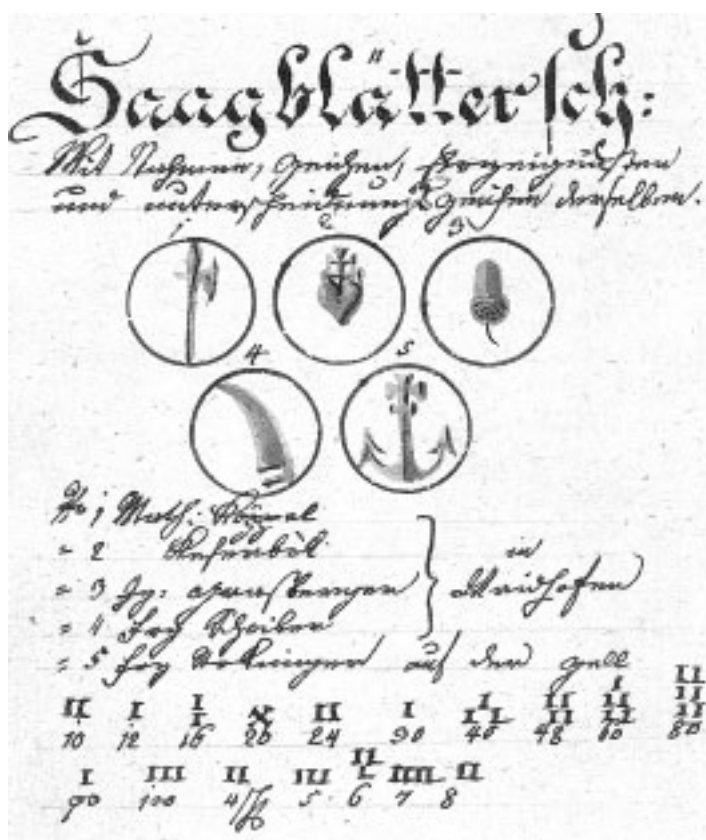 Saagblättersch:
Mit Nahmen, Zeichen, Erzeignußen
und unterscheidungs Zeichen derselben.
1 2 3
4 5
No 1 Math:
= 2 in
= 3 Ig: Waidhofen
= 4 Frz Scheiber
= 5 Frz aus der Zell
II I I I X II I I I I II II I II II II II II
10 12 16 20 24 30 40 48 60 80
I III II III II I IIII II
90 100 4/ß 5 6 7 8